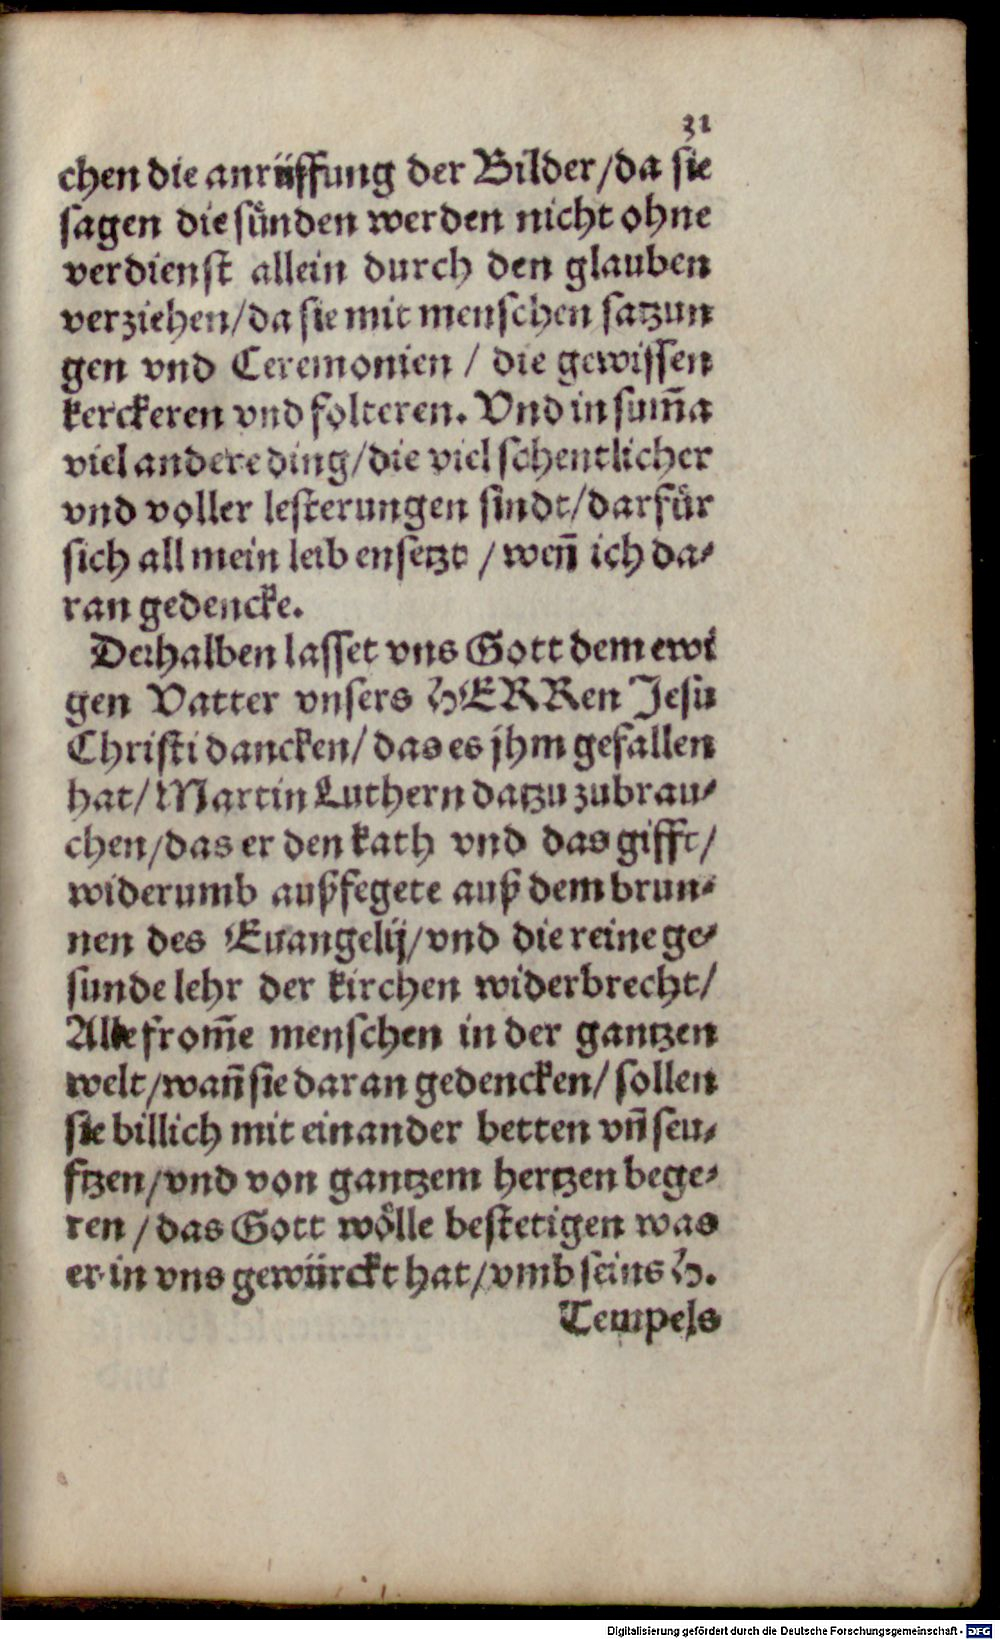 31
chen die anrüffung der Bilder/da sie
sagen die sünden werden nicht ohne
verdienst allein durch den glauben
verziehen/da sie mit menschen satzun
gen vnd Ceremonien / die gewissen
kerckeren vnd folteren. Vnd in sum̃a
viel andere ding/die viel schentlicher
vnd voller lesterungen sindt/darfür
sich all mein leib ensetzt / weñ ich da-
ran gedencke.
Derhalben lasset vns Gott dem ewi
gen Vatter vnsers HERRen Jesu
Christi dancken/ das es jhm gefallen
hat/ Martin Luthern datzu zubrau-
chen/das er den kath vnd das gifft/
widerumb außfegete auß dem brun-
nen des Euangelij/vnd die reine ge-
sunde lehr der kirchen widerbrecht/
Alle from̃e menschen in der gantzen
welt/wañ sie daran gedencken/ sollen
sie billich mit einander betten vñ seu-
ftzen/vnd von gantzem hertzen bege-
ren / das Gott wölle bestetigen was
er in vns gewürckt hat/vmb seins H.
Tempels
Digitalisierung gefördert durch die Deutsche Forschungsgemeinschaft - DFG